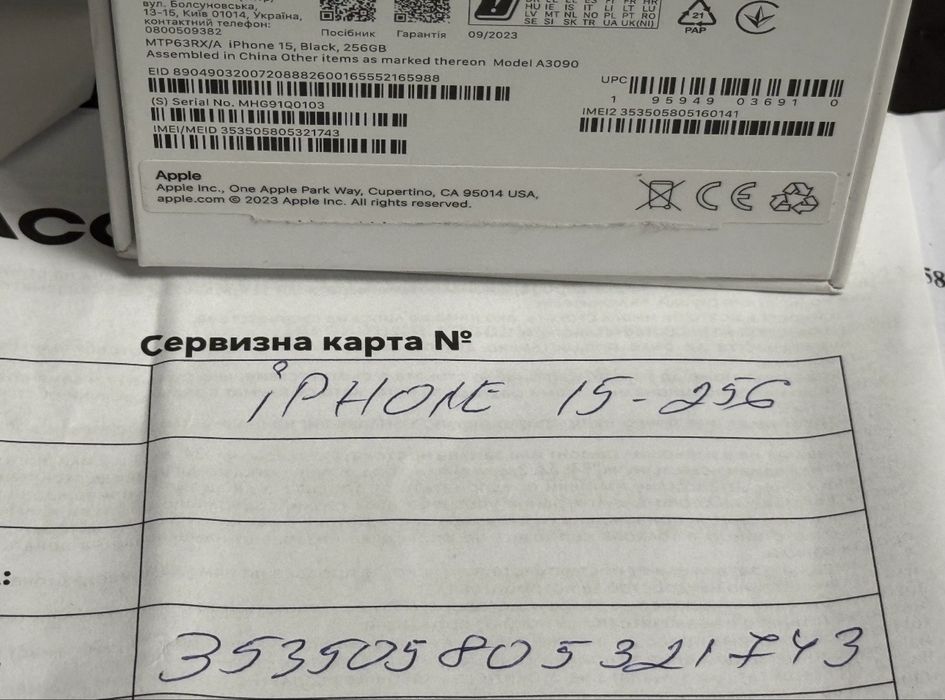 вул. Болсуновська,
13-15, Київ 01014, Україна,
контактний телефон:
0800509382
Посібник
Гарантія
09/2023
HU IE IS IT LI LT LU
LV MT NL NO PL PT RO
SE SI SK TR UA UK(NI)
21
PAP
MTP63RX/A iPhone 15, Black, 256GB
Assembled in China Other items as marked thereon Model A3090
EID 89049032007208882600165552165988
UPC
1 95949 03691 0
(S) Serial No. MHG91Q0103
IMEI2 353505805160141
IMEI/MEID 353505805321743
Apple
Apple Inc., One Apple Park Way, Cupertino, CA 95014 USA,
apple.com © 2023 Apple Inc. All rights reserved.
CE
Сервизна карта №
iPHONE 15-256
353505805321743